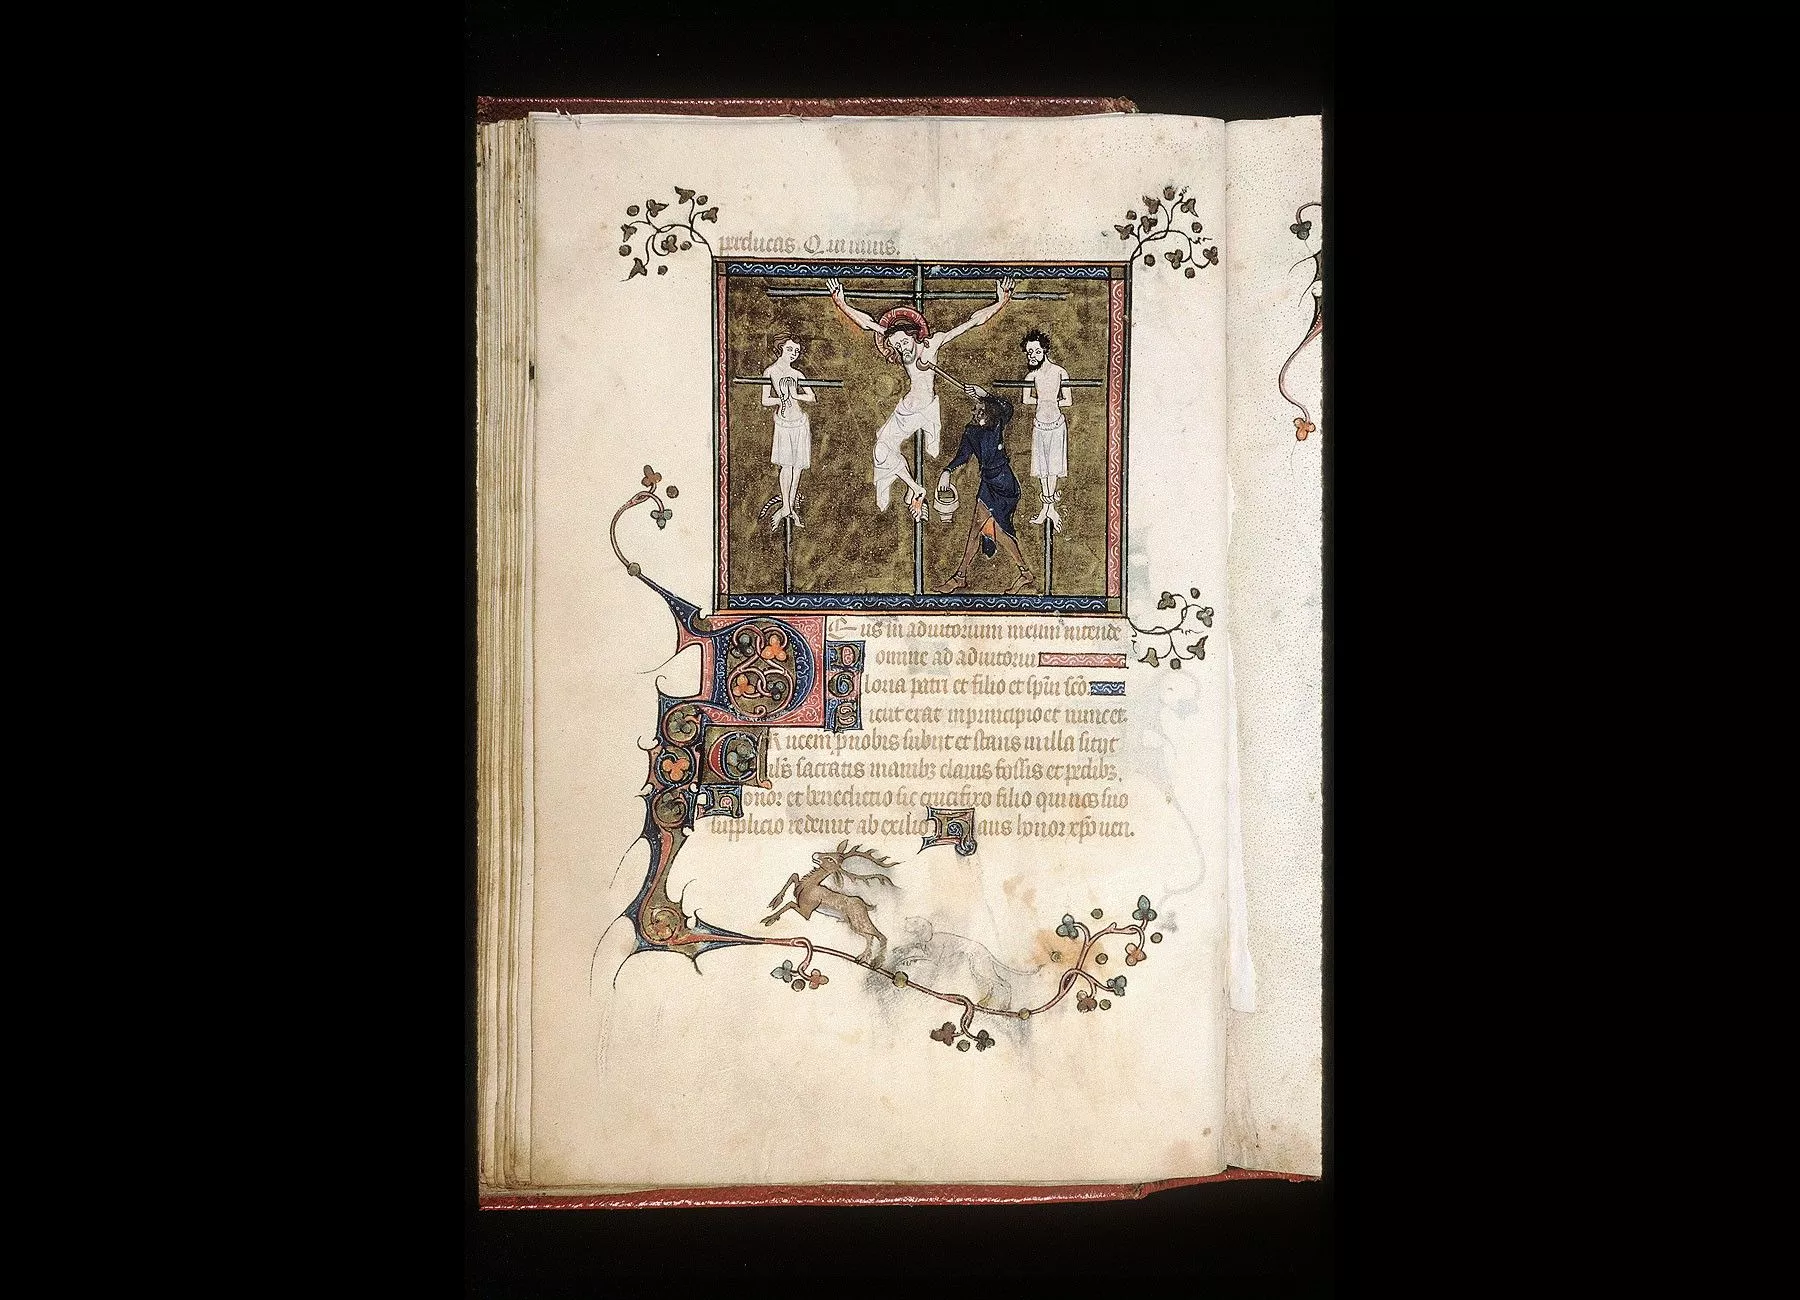 perducas. Qui uiuis.
Deus in adiutorium meum intende
Domine ad adiutoriu
Gloria patri et filio et spiu sco.
Sicut erat in principio et nunc et
CRucem p nobis subiit et stans in illa sitiit
ihs sacratis manibz clauis fossis et pedibz.
Honor et benedictio sit crucifixo filio qui nos suo
supplicio redemit ab exilio Laus honor xpo uen.